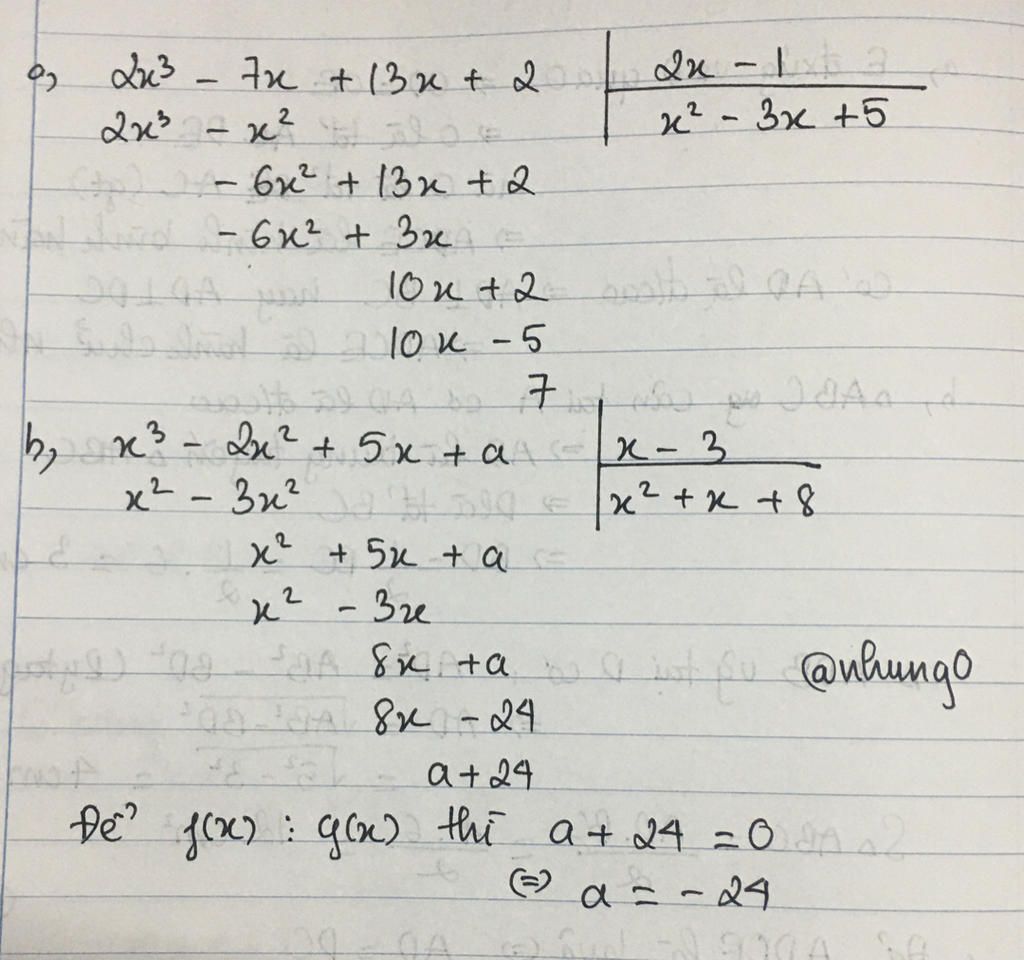 a, 2x³ - 7x + 13x + 2 | 2x - 1
2x³ - x² | x² - 3x + 5
- 6x² + 13x + 2
- 6x² + 3x
10x + 2
10x - 5
7
b, x³ - 2x² + 5x + a | x - 3
x² - 3x² | x² + x + 8
x² + 5x + a
x² - 3x
8x + a
@nhung0
8x - 24
a + 24
Để f(x) ⋮ g(x) thì a + 24 = 0
(=) a = - 24